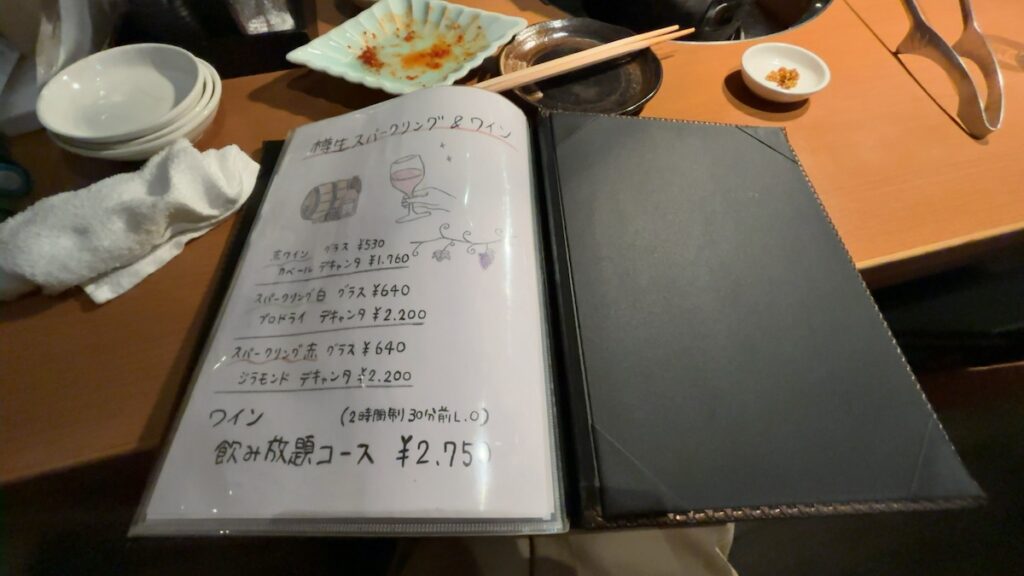 樽生スパークリング&ワイン
赤ワイン グラス ¥530
カベール デキャンタ ¥1.760
スパークリング白 グラス ¥640
プロドライ デキャンタ ¥2.200
スパークリング赤 グラス ¥640
ジラモンド デキャンタ ¥2.200
ワイン (2時間制 30分前L.O)
飲み放題コース ¥2.750